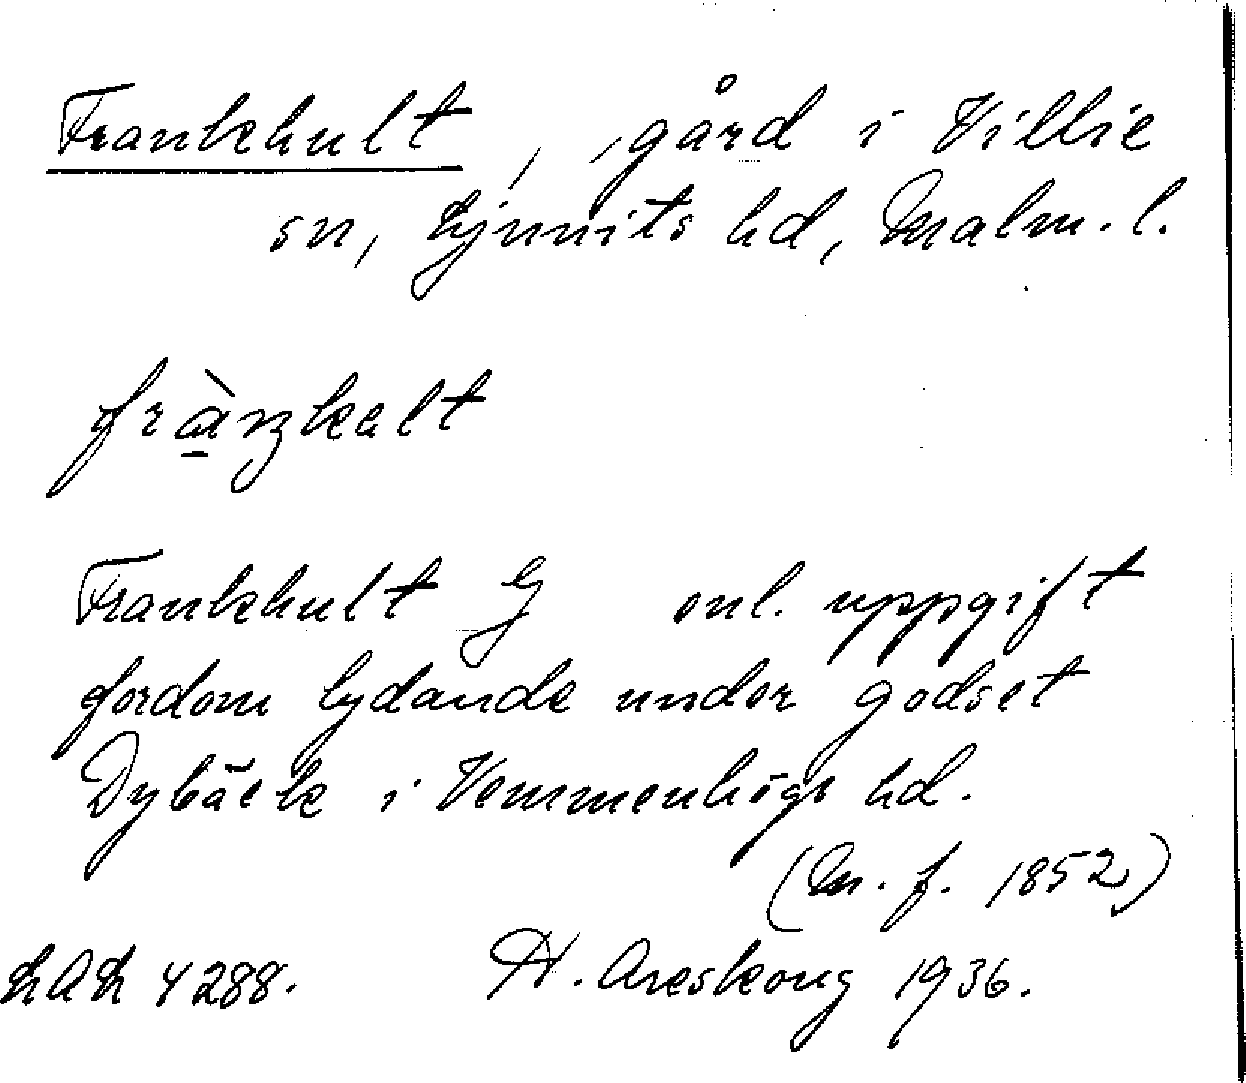 Frankhult, gård i Villie
sn, Ljunits hd, Malm. l.
frànkalt
Frankhult G enl. uppgift
fordom lydande under godset
Dybäck i Vemmenhögs hd.
(M. f. 1852)
LAL 4288. H. Areskoug 1936.